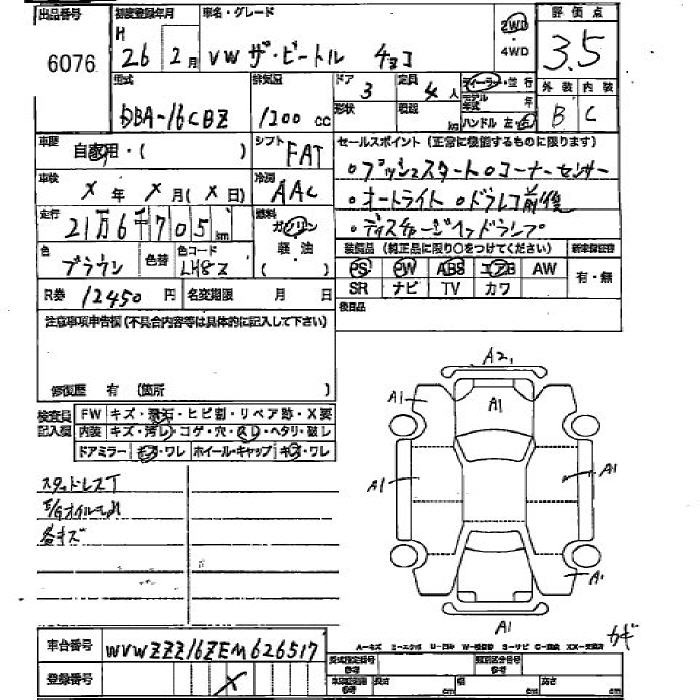 出品番号
6076
初度登録年月
H
26 2月
車名・グレード
VW ザ・ビートル チョコ
2WD
・4WD
評価点
3.5
外装 内装
B C
型式
DBA-16CBZ
排気量
1200 cc
ドア
3
定員
4人
形状
積載
kg
ディーラー・並行
モデル年式 年
ハンドル 左・右
車歴
自家用・( )
シフト
FAT
セールスポイント(正常に機能するものに限ります)
○プッシュスタート○コーナーセンサー
○オートライト ○ドラレコ前後
○ディスチャージヘッドランプ
車検
X年 X月(X日)
冷房
AAC
走行
21万6千705km
燃料
ガソリン
軽油
( )
色
ブラウン
色替
色コード
LH8Z
装備品(純正品に限り○をつけてください)
新車保証書
PS PW ABS エアB AW
SR ナビ TV カワ
有・無
R券 12450円
名変期限 月 日
後日品
注意事項申告欄(不具合内容等は具体的に記入して下さい)
修復歴 有 (箇所 )
検査員
記入欄
FW キズ・飛石・ヒビ割・リペア跡・X要
内装 キズ・汚レ・コゲ・穴・スレ・ヘタリ・破レ
ドアミラー キズ・ワレ ホイール・キャップ キズ・ワレ
スタッドレスT
各キズ
A2
A1
A1
A1
A1
A1
A1
カギ
車台番号
WVWZZZ16ZEM626517
登録番号
X
型式指定番号
参考
類別区分番号
参考
車体寸法
参考
長さ cm
幅 cm
高さ cm